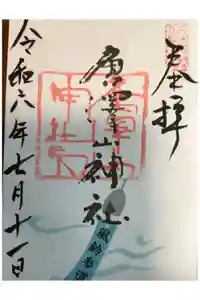 奉拝
唐澤山神社
令和六年七月十一日